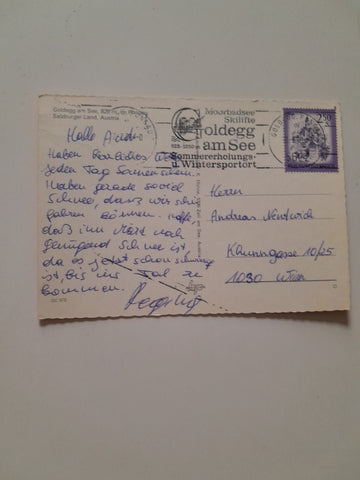 Goldegg am See, 825 m,
Salzburger Land, Austria
Moorbadsee
Skilifte
Goldegg
am See
Sommererholungs-
u. Wintersportort
2.50
Hallo Andi
Haben herrliches Wetter
jeden Tag Sonnenschein.
Haben gerade soviel
Schnee, dass wir schi
fahren können. Hoffe,
daß im März noch
genügend Schnee ist,
da es jetzt schon
ist, bis ins Tal zu
kommen.
Herrn
Andreas
10/25
1030 Wien